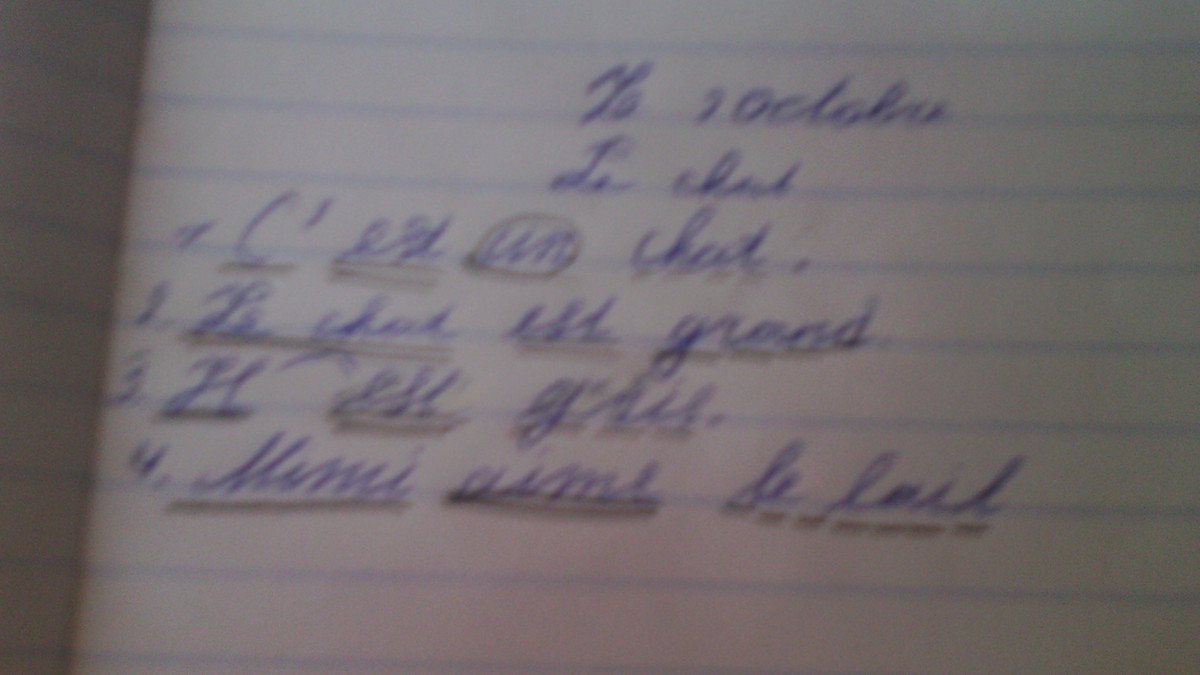 Le 2 octobre
Le chat
1. C'est un chat.
2. Le chat est grand
3. Il est gris.
4. Mimi aime le lait